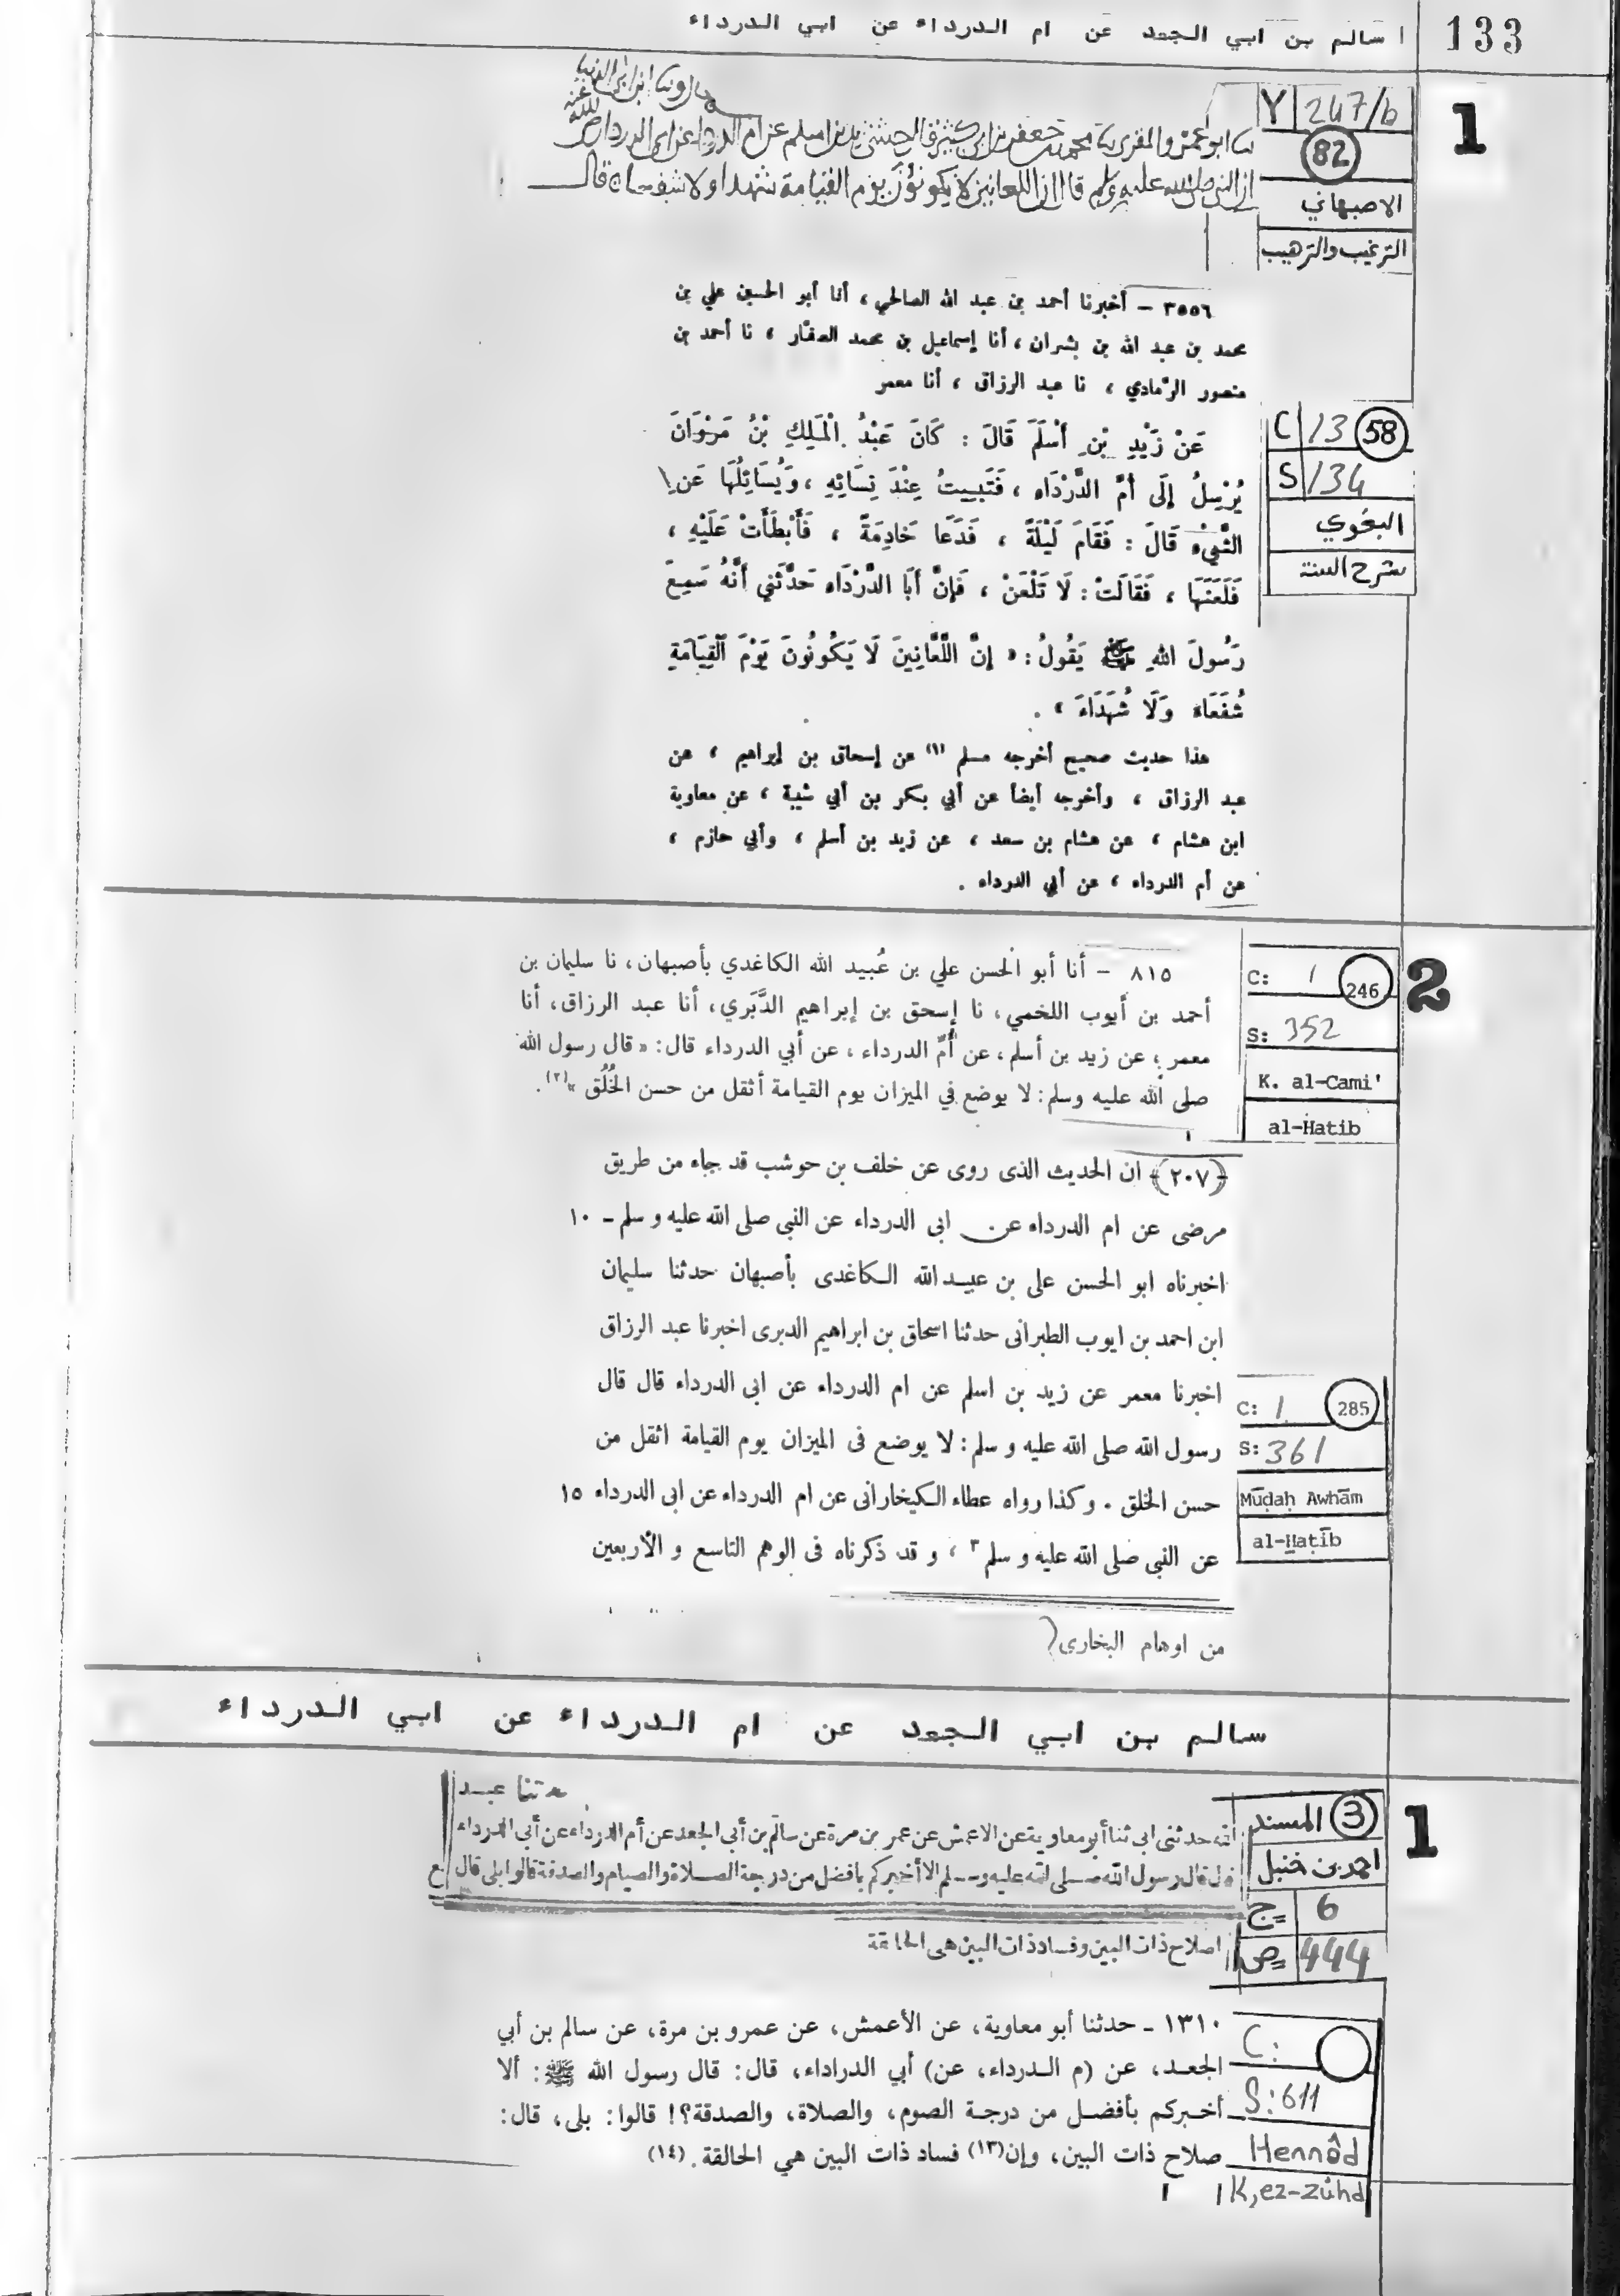 سالم بن ابي الجعد عن ام الدرداء عن ابي الدرداء
133
1
Y 247/b
82
الاصبهاني
الترغيب والترهيب
ان النبي صلى الله عليه وسلم قال ان اللعانين لا يكونون يوم القيامة شهدا ولا شفعا قال
٣٥٥٦ – أخبرنا أحمد بن عبد الله الصالحي ، أنا أبو الحسين علي بن
محمد بن عبد الله بن بشران ، أنا إسماعيل بن محمد الصفّار ، نا أحمد بن
منصور الرّمادي ، نا عبد الرزاق ، أنا معمر
عَنْ زَيْدِ بْنِ أَسْلَمَ قَالَ : كَانَ عَبْدُ الْمَلِكِ بْنُ مَرْوَانَ
يُرْسِلُ إِلَى أُمِّ الدَّرْدَاءِ ، فَتَبِيتُ عِنْدَ نِسَائِهِ ، وَيُسَائِلُهَا عَنِ
الشَّيْءِ قَالَ : فَقَامَ لَيْلَةً ، فَدَعَا خَادِمَةً ، فَأَبْطَأَتْ عَلَيْهِ ،
فَلَعَنَهَا ، فَقَالَتْ : لَا تَلْعَنْ ، فَإِنَّ أَبَا الدَّرْدَاءِ حَدَّثَنِي أَنَّهُ سَمِعَ
رَسُولَ اللهِ ﷺ يَقُولُ : « إِنَّ اللَّعَّانِينَ لَا يَكُونُونَ يَوْمَ الْقِيَامَةِ
شُفَعَاءَ وَلَا شُهَدَاءَ » .
هذا حديث صحيح أخرجه مسلم (١) عن إسحاق بن إبراهيم ، عن
عبد الرزاق ، وأخرجه أيضاً عن أبي بكر بن أبي شيبة ، عن معاوية
ابن هشام ، عن هشام بن سعد ، عن زيد بن أسلم ، وأبي حازم ،
عن أم الدرداء ، عن أبي الدرداء .
C 13 58
S 134
البغوي
شرح السنة
2
٨١٥ – أنا أبو الحسن علي بن عُبيد الله الكاغدي بأصبهان، نا سليمان بن
أحمد بن أيوب اللخمي، نا إسحق بن إبراهيم الدَّبَري، أنا عبد الرزاق، أنا
معمر، عن زيد بن أسلم، عن أُمّ الدرداء، عن أبي الدرداء قال: « قال رسول الله
صلى الله عليه وسلم: لا يوضع في الميزان يوم القيامة أثقل من حسن الخُلُق »(٢).
C: 1 246
S: 352
K. al-Cami'
al-Hatib
﴿٢٠٧﴾ ان الحديث الذى روى عن خلف بن حوشب قد جاء من طريق
مرضى عن ام الدرداء عن ابى الدرداء عن النبى صلى الله عليه و سلم – ١٠
اخبرناه ابو الحسن على بن عبيد الله الكاغدى بأصبهان حدثنا سليمان
ابن احمد بن ايوب الطبرانى حدثنا اسحاق بن ابراهيم الدبرى اخبرنا عبد الرزاق
اخبرنا معمر عن زيد بن اسلم عن ام الدرداء عن ابى الدرداء قال قال
رسول الله صلى الله عليه و سلم : لا يوضع فى الميزان يوم القيامة اثقل من
حسن الخلق . و كذا رواه عطاء الكيخارانى عن ام الدرداء عن ابى الدرداء ١٥
عن النبى صلى الله عليه و سلم ٣ ، و قد ذكرناه فى الوهم التاسع و الأربعين
من اوهام البخارى
C: 1 285
S: 361
Mūḍaḥ Awhām
al-Haṭīb
سالم بن ابي الجعد عن ام الدرداء عن ابي الدرداء
1
3 المسند
احمد بن حنبل
ج 6
ص 444
حدثنا عبد
الله حدثنى ابى ثنا أبو معاوية عن الاعمش عن عمرو بن مرة عن سالم بن أبى الجعد عن أم الدرداء عن أبى الدرداء
قال قال رسول الله صلى الله عليه وسلم الا أخبركم بافضل من درجة الصلاة والصيام والصدقة قالوا بلى قال
اصلاح ذات البين وفساد ذات البين هى الحالقة
١٣١٠ ـ حدثنا أبو معاوية، عن الأعمش، عن عمرو بن مرة، عن سالم بن أبي
الجعد، عن (م الدرداء، عن) أبي الدراداء، قال: قال رسول الله ﷺ: ألا
أخبركم بأفضل من درجة الصوم، والصلاة، والصدقة؟! قالوا: بلى، قال:
صلاح ذات البين، وإن(١٣) فساد ذات البين هي الحالقة. (١٤)
C:
S: 611
Hennâd
K, ez-zühd